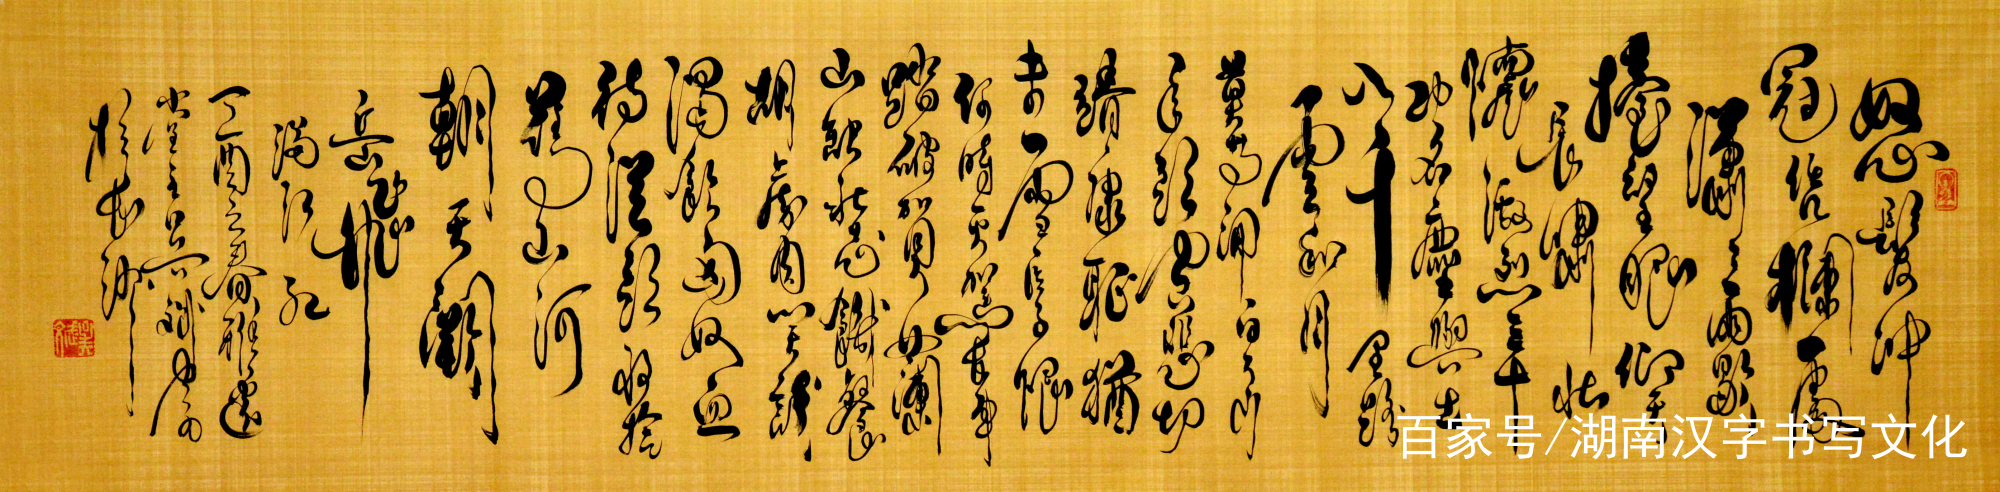 怒髮沖
冠凭欄處
瀟瀟雨歇
擡望眼仰天
長嘯壯
懷激烈三十
功名塵與土
八千里路
雲和月
莫等閒白了少
年頭空悲切
靖康恥猶
未雪臣子恨
何時駕長車
踏破賀蘭
山缺壯志饑餐
胡虜肉笑談
渴飲匈奴血
待從頭收拾
舊山河
朝天闕
岳飛
滿江紅
丁酉之春雅
堂主吳斌
於長沙
百家号/湖南汉字书写文化